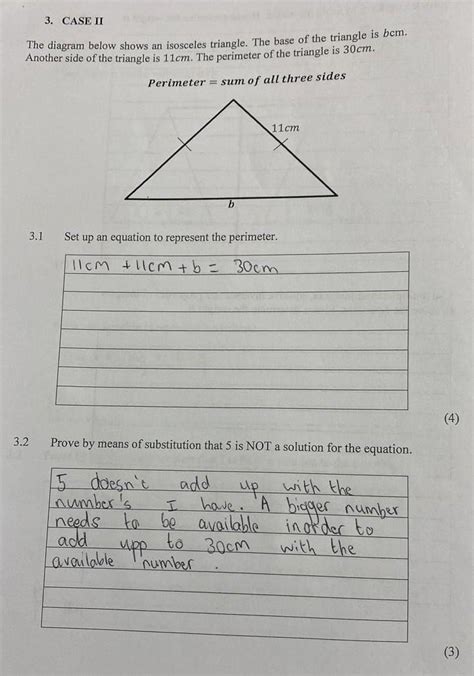 3. CASE II
The diagram below shows an isosceles triangle. The base of the triangle is bcm.
Another side of the triangle is 11cm. The perimeter of the triangle is 30cm.
Perimeter = sum of all three sides
11cm
b
3.1 Set up an equation to represent the perimeter.
11cm + 11cm + b = 30cm
(4)
3.2 Prove by means of substitution that 5 is NOT a solution for the equation.
5 doesn't add up with the
number's I have. A bigger number
needs to be available inorder to
add upp to 30cm with the
available number.
(3)